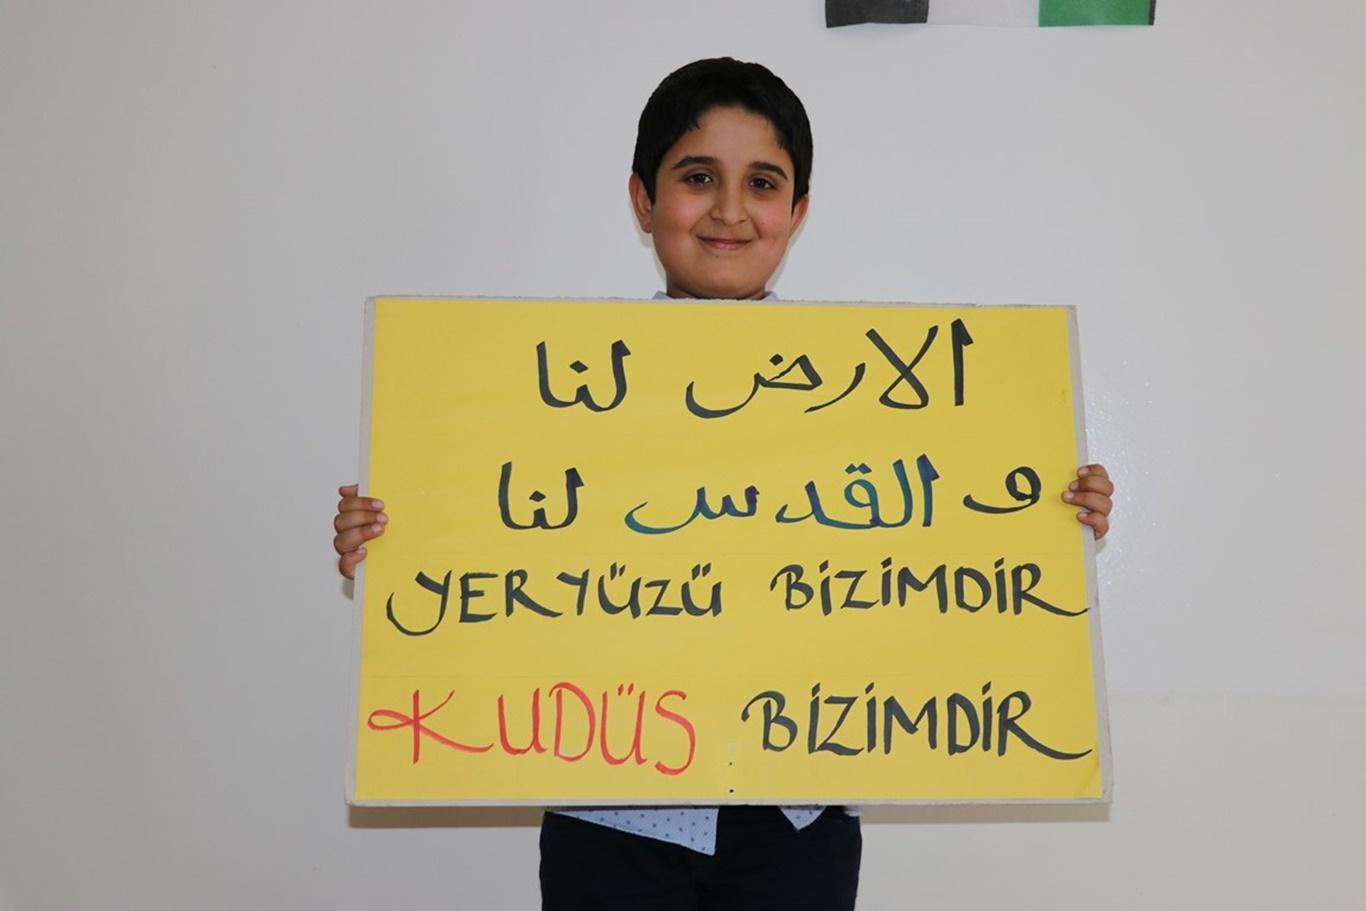 الارض لنا
و القدس لنا
YERYÜZÜ BİZİMDİR
KUDÜS BİZİMDİR